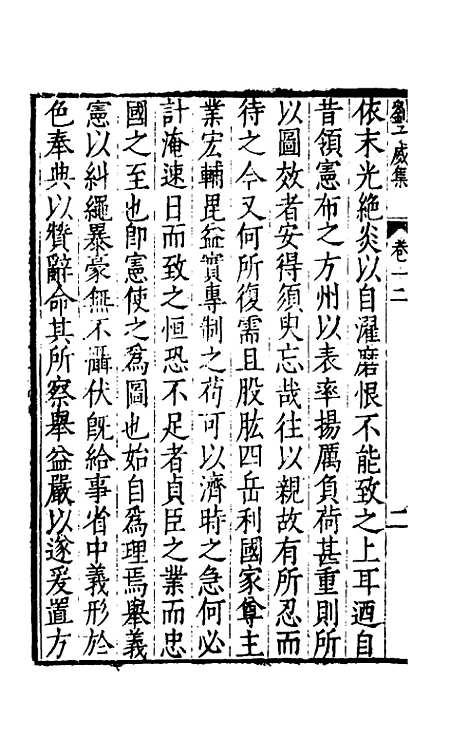 劉子威集
卷一二
二
依末光絶炎以自濯磨恨不能致之上耳迺自
昔領憲布之方州以表率揚厲負荷甚重則所
以圖效者安得須臾忘哉往以親故有所忍而
待之今又何所復需且股肱四岳利國家尊主
業宏輔毘益實專制之苟可以濟時之急何必
計淹速日而致之恒恐不足者貞臣之業而忠
國之至也卽憲使之爲圖也始自爲理焉舉義
憲以糾繩暴豪無不讋伏旣給事省中義形於
色奉典以贊辭命其所察舉益嚴以遂爰置方